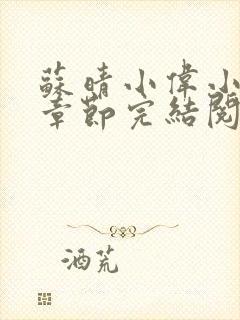 蘇晴小偉小
章節完結閱
酒荒